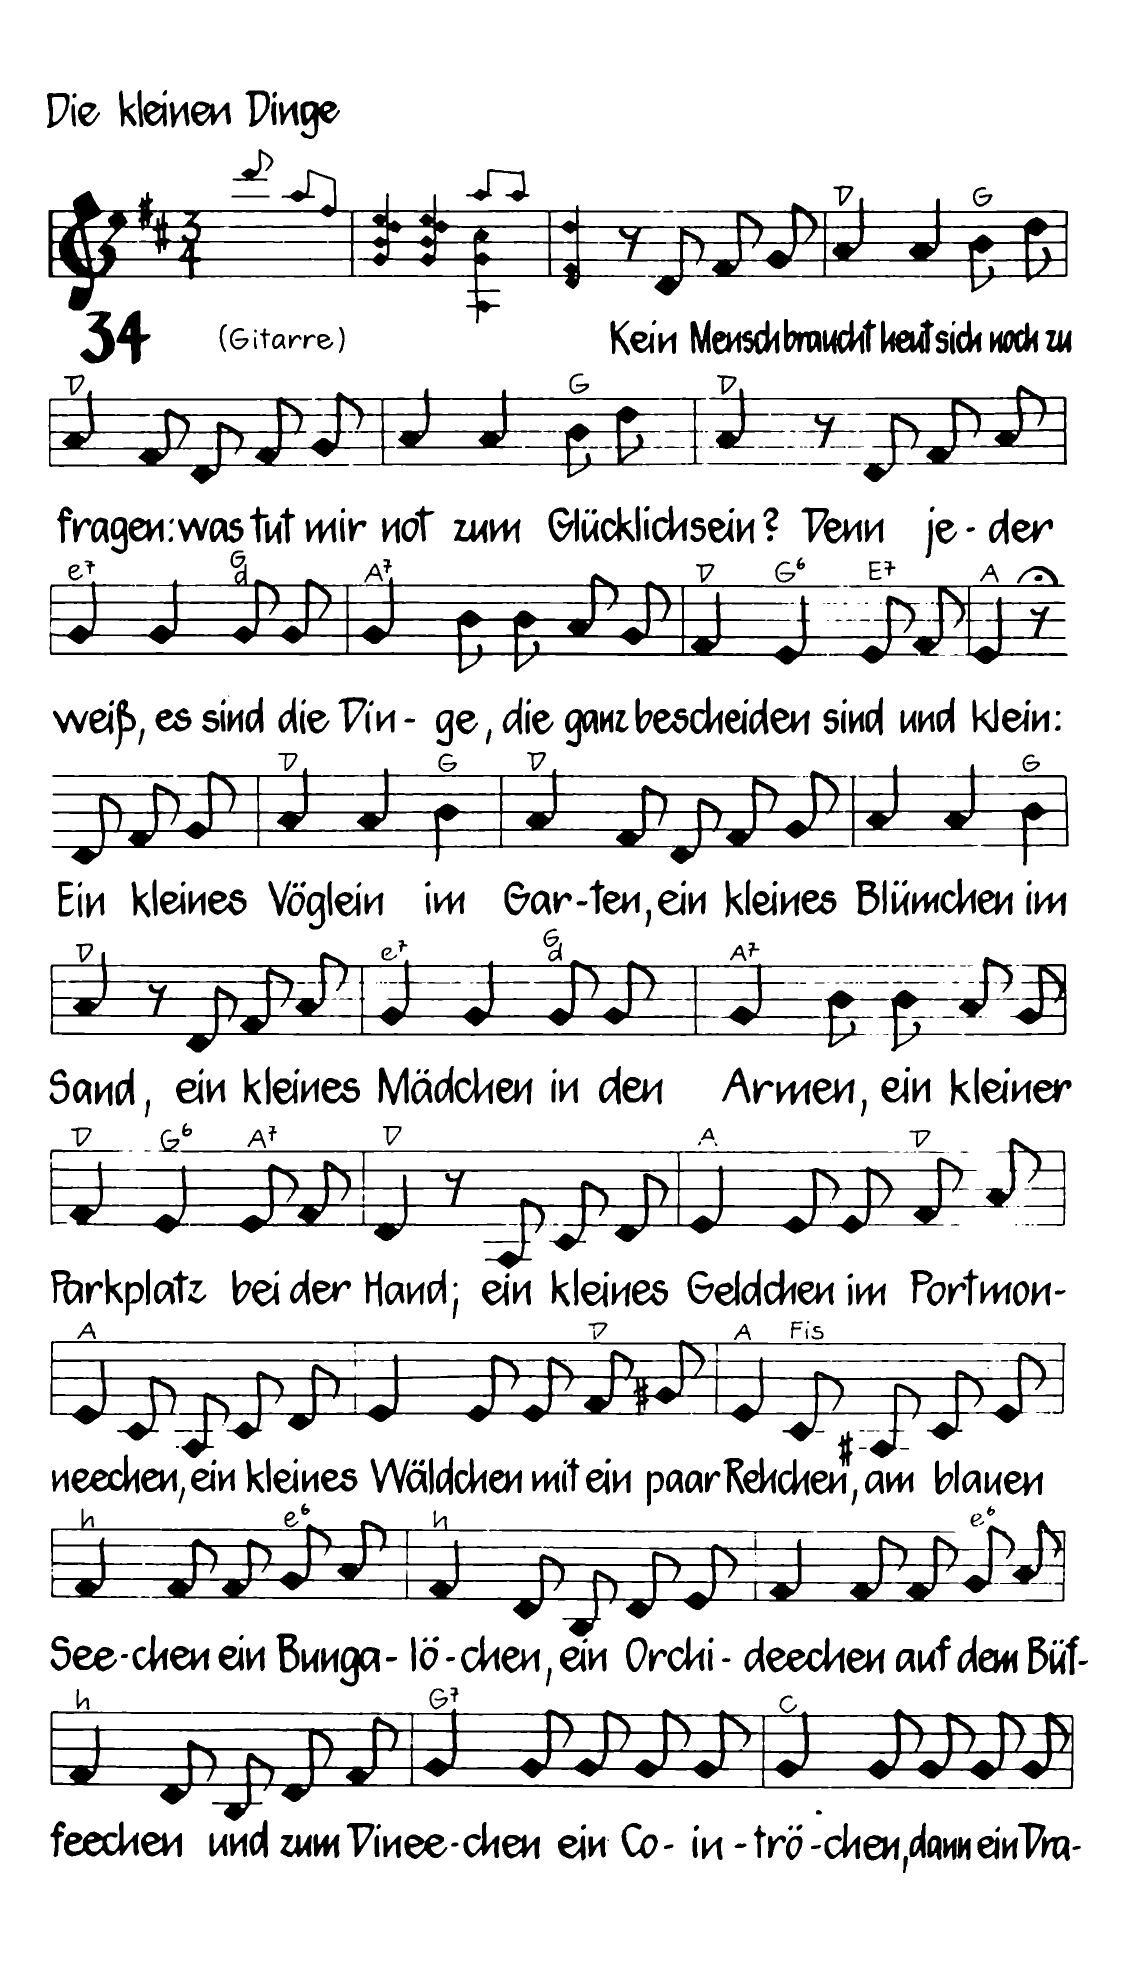 Die kleinen Dinge
3
4
D G
34 (Gitarre) Kein Mensch braucht heut sich noch zu
D G D
fragen: was tut mir not zum Glücklichsein? Denn je - der
e7 G d A7 D G6 E7 A
weiß, es sind die Din - ge, die ganz bescheiden sind und klein:
D G D G
Ein kleines Vöglein im Gar - ten, ein kleines Blümchen im
D e7 G d A7
Sand, ein kleines Mädchen in den Armen, ein kleiner
D G6 A7 D A D
Parkplatz bei der Hand; ein kleines Geldchen im Portmon-
A D A Fis
neechen, ein kleines Wäldchen mit ein paar Rehchen, am blauen
h e6 h e6
See - chen ein Bunga - lö - chen, ein Orchi - deechen auf dem Büf-
h G7 C
feechen und zum Dinee - chen ein Co - in - trö - chen, dann ein Dra-